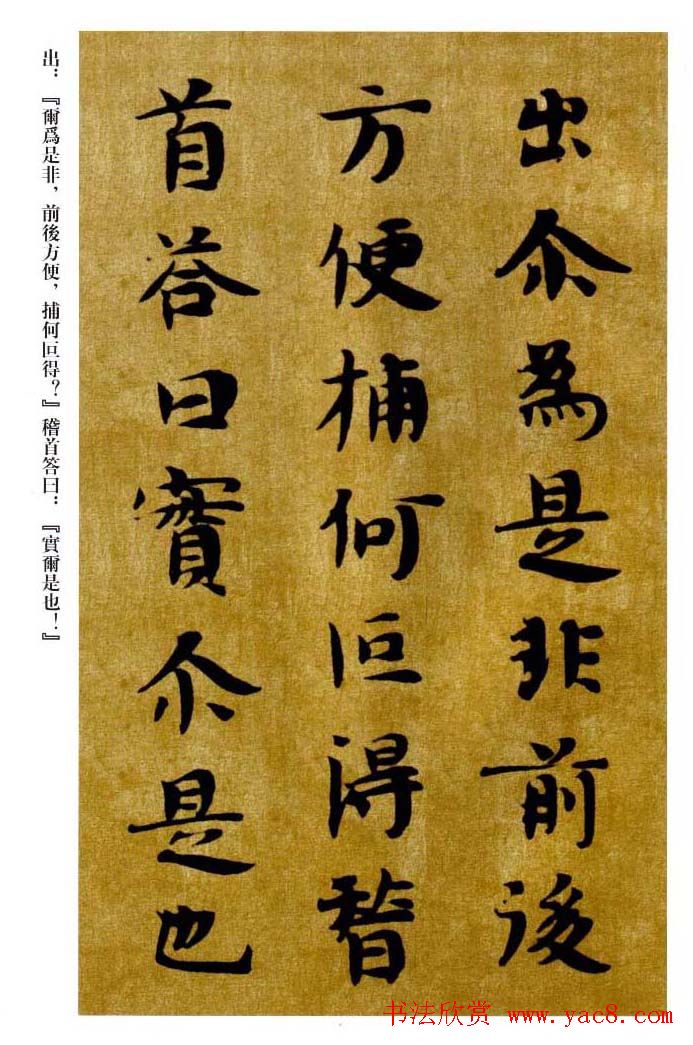 出尒為是非前後
方便捕何叵得稽
首荅曰實尒是也
出：『爾爲是非，前後方便，捕何叵得？』稽首答曰：『實爾是也！』
书法欣赏 www.yac8.com